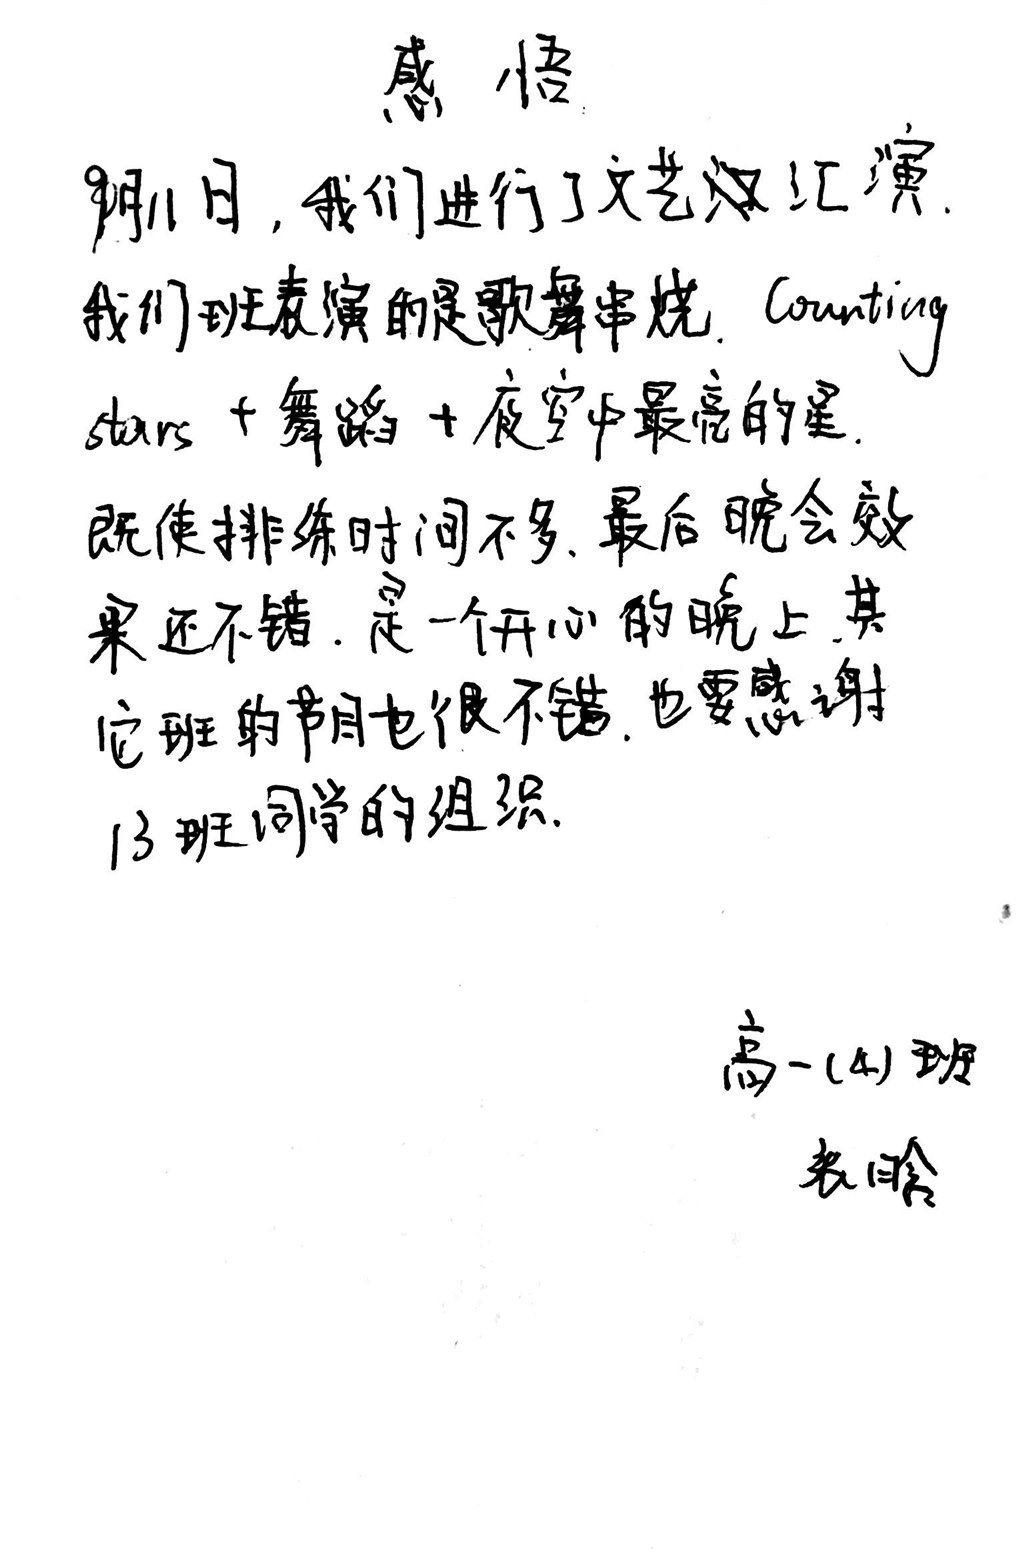 感悟
9月11日，我们进行了文艺汇演.
我们班表演的是歌舞串烧. Counting
stars + 舞蹈 + 夜空中最亮的星.
既使排练时间不多、最后晚会效
果还不错. 是一个开心的晚上.其
它班的节目也很不错. 也要感谢
13班同学的组织.
高一(4)班
张晗